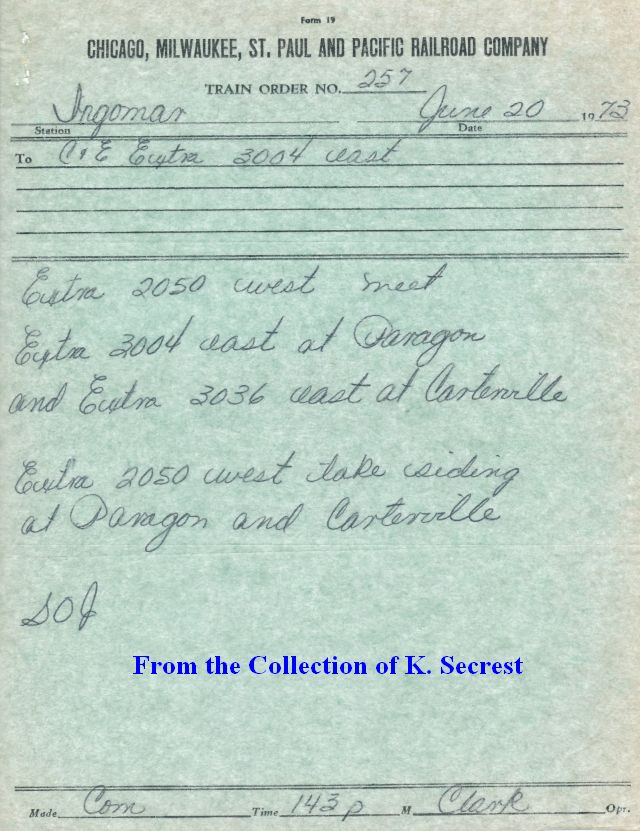 Form 19
CHICAGO, MILWAUKEE, ST. PAUL AND PACIFIC RAILROAD COMPANY
TRAIN ORDER NO. 257
Ingomar June 20 1973
Station Date
To C & E Extra 3004 east
Extra 2050 west meet
Extra 3004 east at Paragon
and Extra 3036 east at Carterville
Extra 2050 west take siding
at Paragon and Carterville
SOJ
From the Collection of K. Secrest
Made Com Time 143 p M Clark Opr.